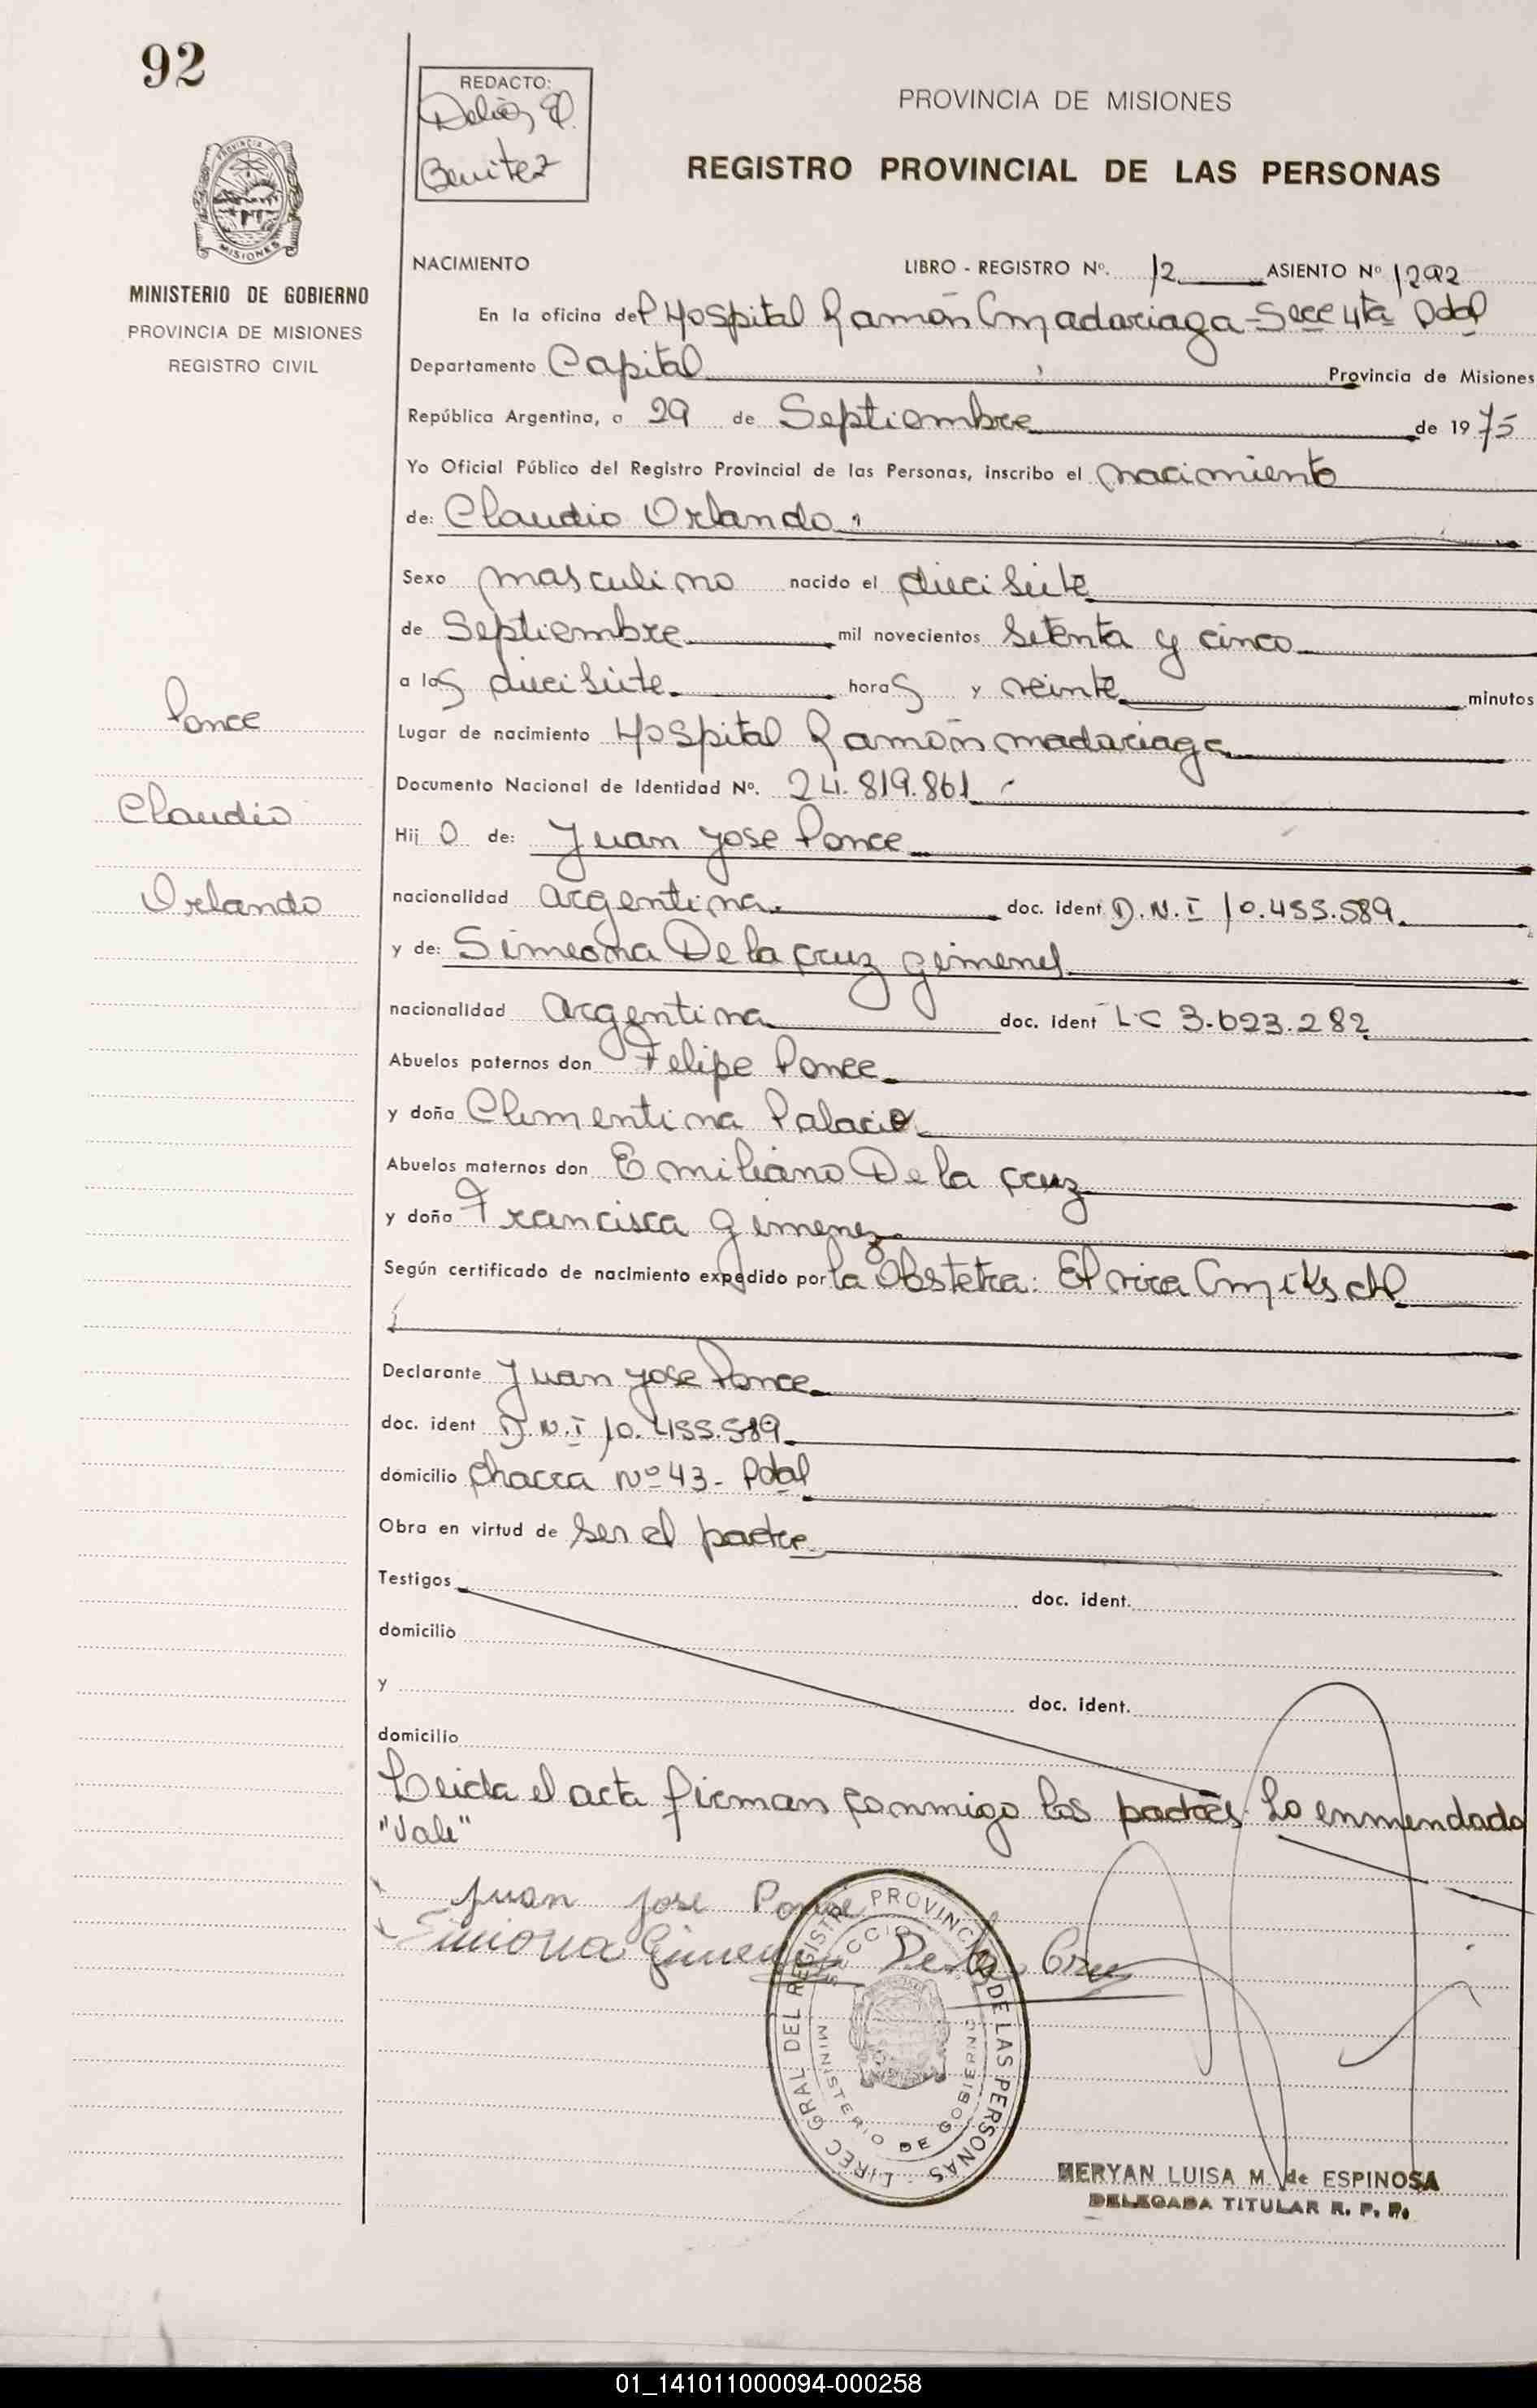 92
REDACTO:
Benitez
PROVINCIA DE MISIONES
REGISTRO PROVINCIAL DE LAS PERSONAS
MISIONES
MINISTERIO DE GOBIERNO
PROVINCIA DE MISIONES
REGISTRO CIVIL
NACIMIENTO LIBRO - REGISTRO Nº. 12 ASIENTO Nº 1292
En la oficina del Hospital Ramón Madariaga - Secc 4ta Pdal
Departamento Capital Provincia de Misiones
República Argentina, a 29 de Septiembre de 1975
Yo Oficial Público del Registro Provincial de las Personas, inscribo el nacimiento
de: Claudio Orlando
Sexo masculino nacido el diecisiete
de Septiembre mil novecientos setenta y cinco
a las diecisiete horas y veinte minutos
Ponce
Lugar de nacimiento Hospital Ramón Madariaga
Documento Nacional de Identidad Nº. 24.819.861
Claudio
Hijo de: Juan Jose Ponce
Orlando
nacionalidad argentina doc. ident D.N.I 10.455.589.
y de: Simeona De la Cruz Gimenez
nacionalidad argentina doc. ident L C 3.623.282
Abuelos paternos don Felipe Ponce
y doña Clementina Palacio
Abuelos maternos don Emiliano De la Cruz
y doña Francisca Gimenez
Según certificado de nacimiento expedido por la Obstetra: Elvira
Declarante Juan Jose Ponce
doc. ident D.N.I 10.455.589
domicilio Chacra Nº 43 - Pdal
Obra en virtud de ser el padre
Testigos doc. ident.
domicilio
y doc. ident.
domicilio
Leida el acta firman conmigo los padres. Lo enmendado
"Vale"
Juan Jose Ponce
Simeona Gimenez De la Cruz
DIREC GRAL DEL REGISTRO PROVINCIAL DE LAS PERSONAS
MINISTERIO DE GOBIERNO
MERYAN LUISA M. de ESPINOSA
DELEGADA TITULAR R. P. P.
01_141011000094-000258